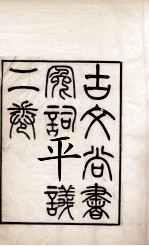 古文尚書
冤詞平議
二卷